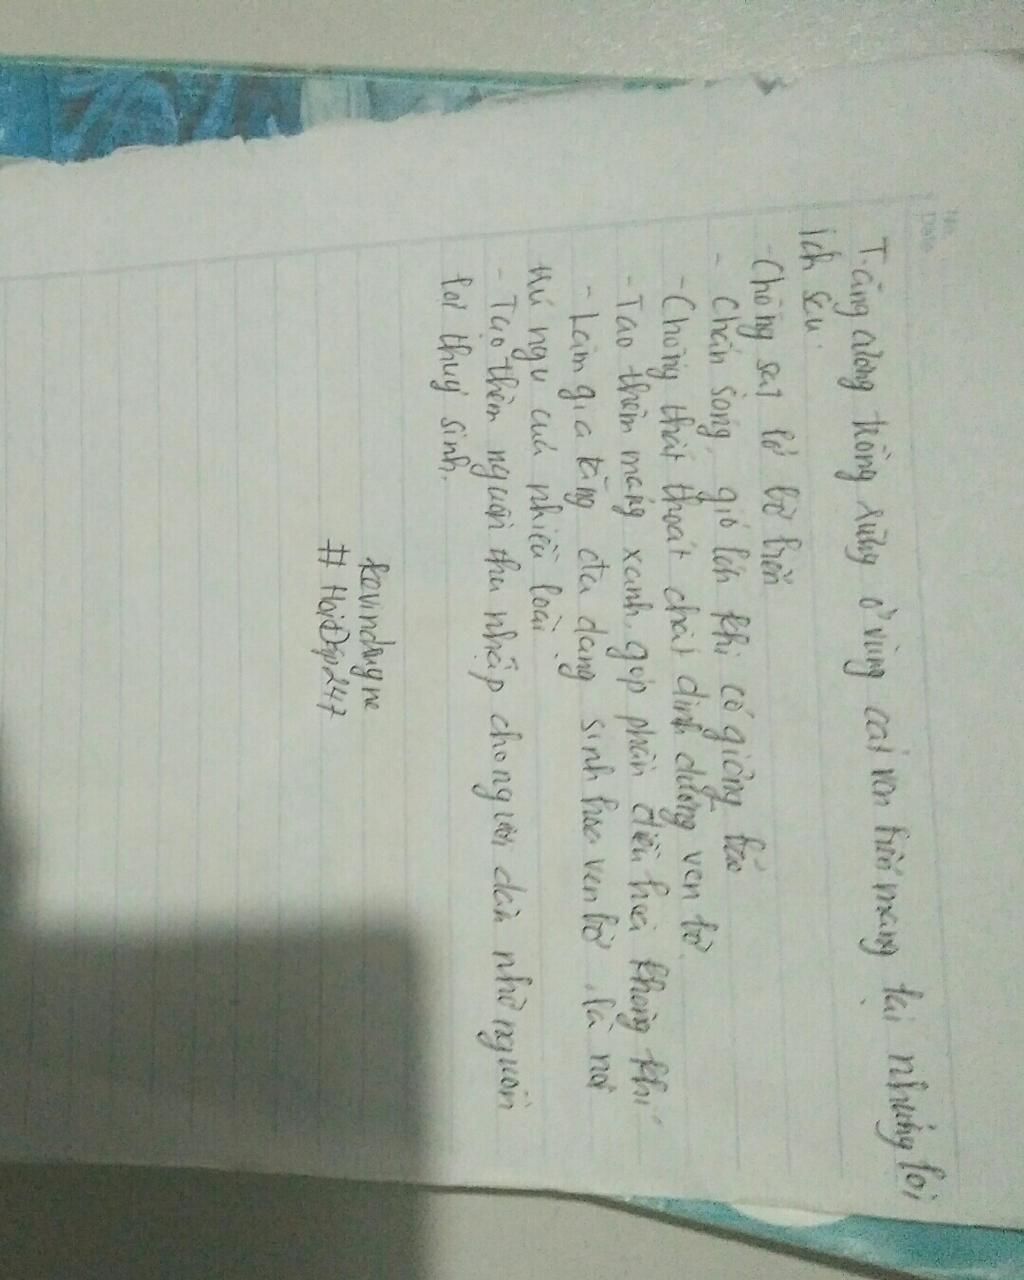 No.
Date
Tăng cường trồng rừng ở vùng cát ven biển mang lại những lợi
ích sau:
- Chống sạt lở bờ biển
- Chắn sóng, gió lớn khi có giông bão
- Chống thất thoát chất dinh dưỡng ven bờ.
- Tạo thêm mảng xanh, góp phần điều hoà không khí
- Làm gia tăng đa dạng sinh học ven bờ, là nơi
trú ngụ của nhiều loài.
- Tạo thêm nguồn thu nhập cho người dân nhờ nguồn
lợi thuỷ sinh.
kevindngne
# HỏiĐáp247